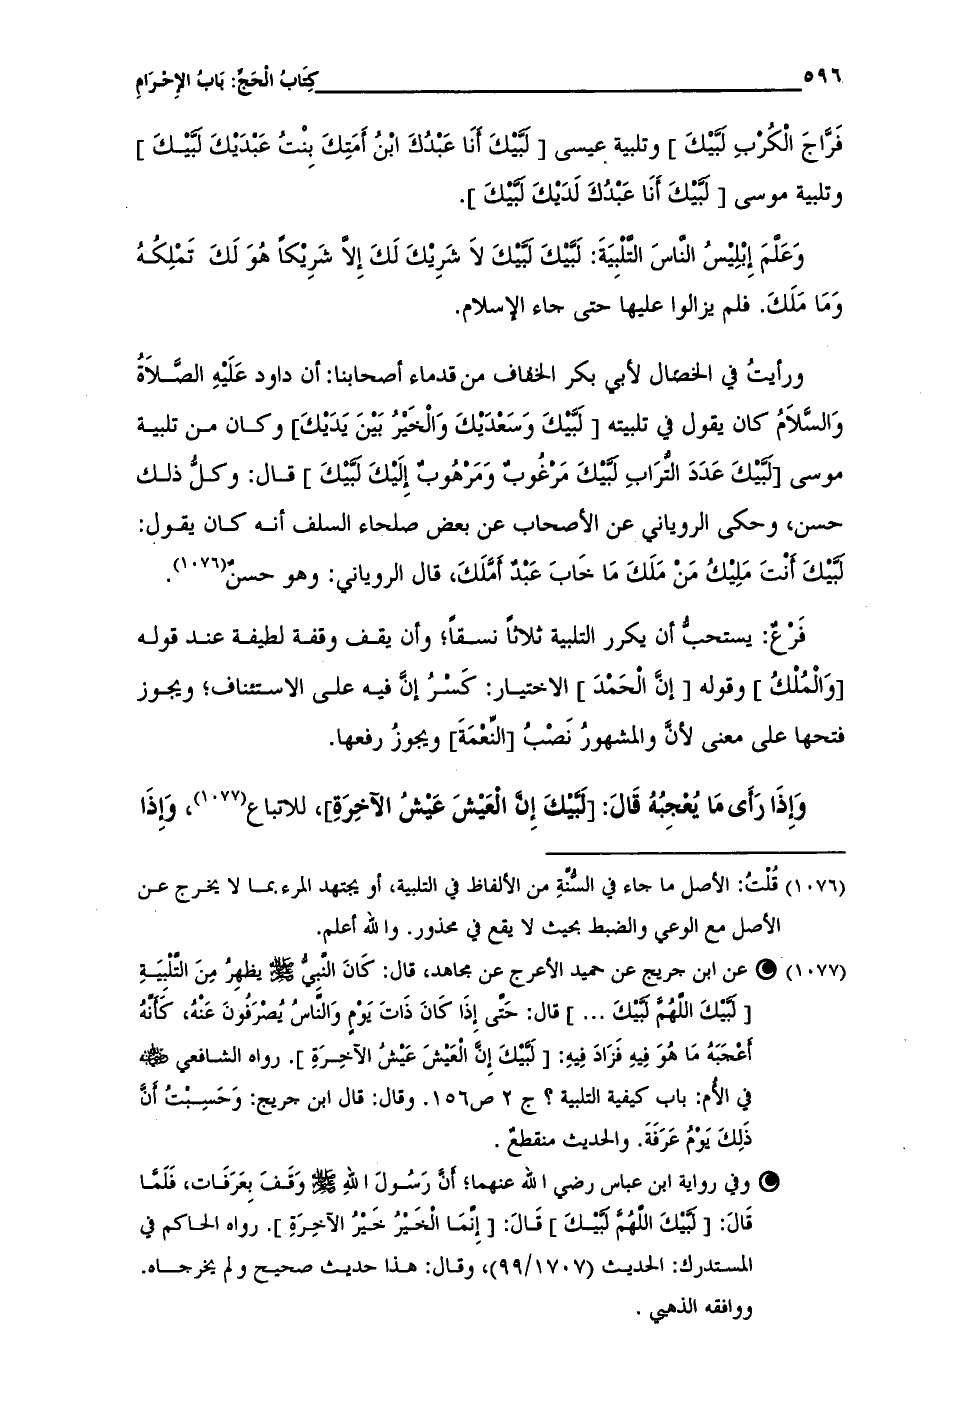 ٥٩٦ كِتَابُ الْحَجِّ: بَابُ الإِحْرَامِ
فَرَّاجَ الْكُرْبِ لَبَّيْكَ ] وتلبية عيسى [ لَبَّيْكَ أَنَا عَبْدُكَ ابْنُ أَمَتِكَ بِنْتُ عَبْدَيْكَ لَبَّيْكَ ]
وتلبية موسى [ لَبَّيْكَ أَنَا عَبْدُكَ لَدَيْكَ لَبَّيْكَ ].
وَعَلَّمَ إِبْلِيْسُ النَّاسَ التَّلْبِيَةَ: لَبَّيْكَ لَبَّيْكَ لاَ شَرِيْكَ لَكَ إِلاَّ شَرِيْكاً هُوَ لَكَ تَمْلِكُهُ
وَمَا مَلَكَ. فلم يزالوا عليها حتى جاء الإسلام.
ورأيتُ في الخصال لأبي بكر الخفاف من قدماء أصحابنا: أن داود عَلَيْهِ الصَّلاَةُ
وَالسَّلاَمُ كان يقول في تلبيته [ لَبَّيْكَ وَسَعْدَيْكَ وَالْخَيْرُ بَيْنَ يَدَيْكَ] وكان من تلبية
موسى [لَبَّيْكَ عَدَدَ التُّرَابِ لَبَّيْكَ مَرْغُوبٌ وَمَرْهُوبٌ إِلَيْكَ لَبَّيْكَ ] قال: وكلُّ ذلك
حسن، وحكى الروياني عن الأصحاب عن بعض صلحاء السلف أنه كان يقول:
لَبَّيْكَ أَنْتَ مَلِيْكُ مَنْ مَلَكَ مَا خَابَ عَبْدٌ أَمَّلَكَ، قال الروياني: وهو حسنٌ(١٠٧٦).
فَرْعٌ: يستحبُّ أن يكرر التلبية ثلاثاً نسقاً؛ وأن يقف وقفة لطيفة عند قوله
[وَالْمُلْكُ ] وقوله [ إِنَّ الْحَمْدَ ] الاختيار: كَسْرُ إِنَّ فيه على الاستئناف؛ ويجوز
فتحها على معنى لأنَّ والمشهورُ نَصْبُ [النِّعْمَةَ] ويجوزُ رفعها.
وَإِذَا رَأَى مَا يُعْجِبُهُ قَالَ: [لَبَّيْكَ إِنَّ الْعَيْشَ عَيْشُ الآخِرَةِ]، للاتباع(١٠٧٧)، وَإِذَا
(١٠٧٦) قُلْتُ: الأصل ما جاء في السُّنَّةِ من الألفاظ في التلبية، أو يجتهد المرء بما لا يخرج عن
الأصل مع الوعي والضبط بحيث لا يقع في محذور. والله أعلم.
(١٠٧٧) عن ابن جريج عن حميد الأعرج عن مجاهد، قال: كَانَ النَّبِيُّ ﷺ يظهِرُ مِنَ التَّلْبِيَةِ
[ لَبَّيْكَ اللَّهُمَّ لَبَّيْكَ ... ] قال: حَتَّى إِذَا كَانَ ذَاتَ يَوْمٍ وَالنَّاسُ يُصْرَفُونَ عَنْهُ، كَأَنَّهُ
أَعْجَبَهُ مَا هُوَ فِيهِ فَزَادَ فِيهِ: [ لَبَّيْكَ إِنَّ الْعَيْشَ عَيْشُ الآخِرَةِ ]. رواه الشافعي ﷺ
في الأُم: باب كيفية التلبية ؟ ج ٢ ص١٥٦. وقال: قال ابن جريج: وَحَسِبْتُ أَنَّ
ذَلِكَ يَوْمُ عَرَفَةَ. والحديث منقطعٌ .
وفي رواية ابن عباس رضي الله عنهما؛ أَنَّ رَسُولَ اللهِ ﷺ وَقَفَ بِعَرَفَات، فَلَمَّا
قَالَ: [ لَبَّيْكَ اللَّهُمَّ لَبَّيْكَ ] قَالَ: [ إِنَّمَا الْخَيْرُ خَيْرُ الآخِرَةِ ]. رواه الحاكم في
المستدرك: الحديث (٩٩/١٧٠٧)، وقال: هذا حديث صحيح ولم يخرجاه.
ووافقه الذهبي .